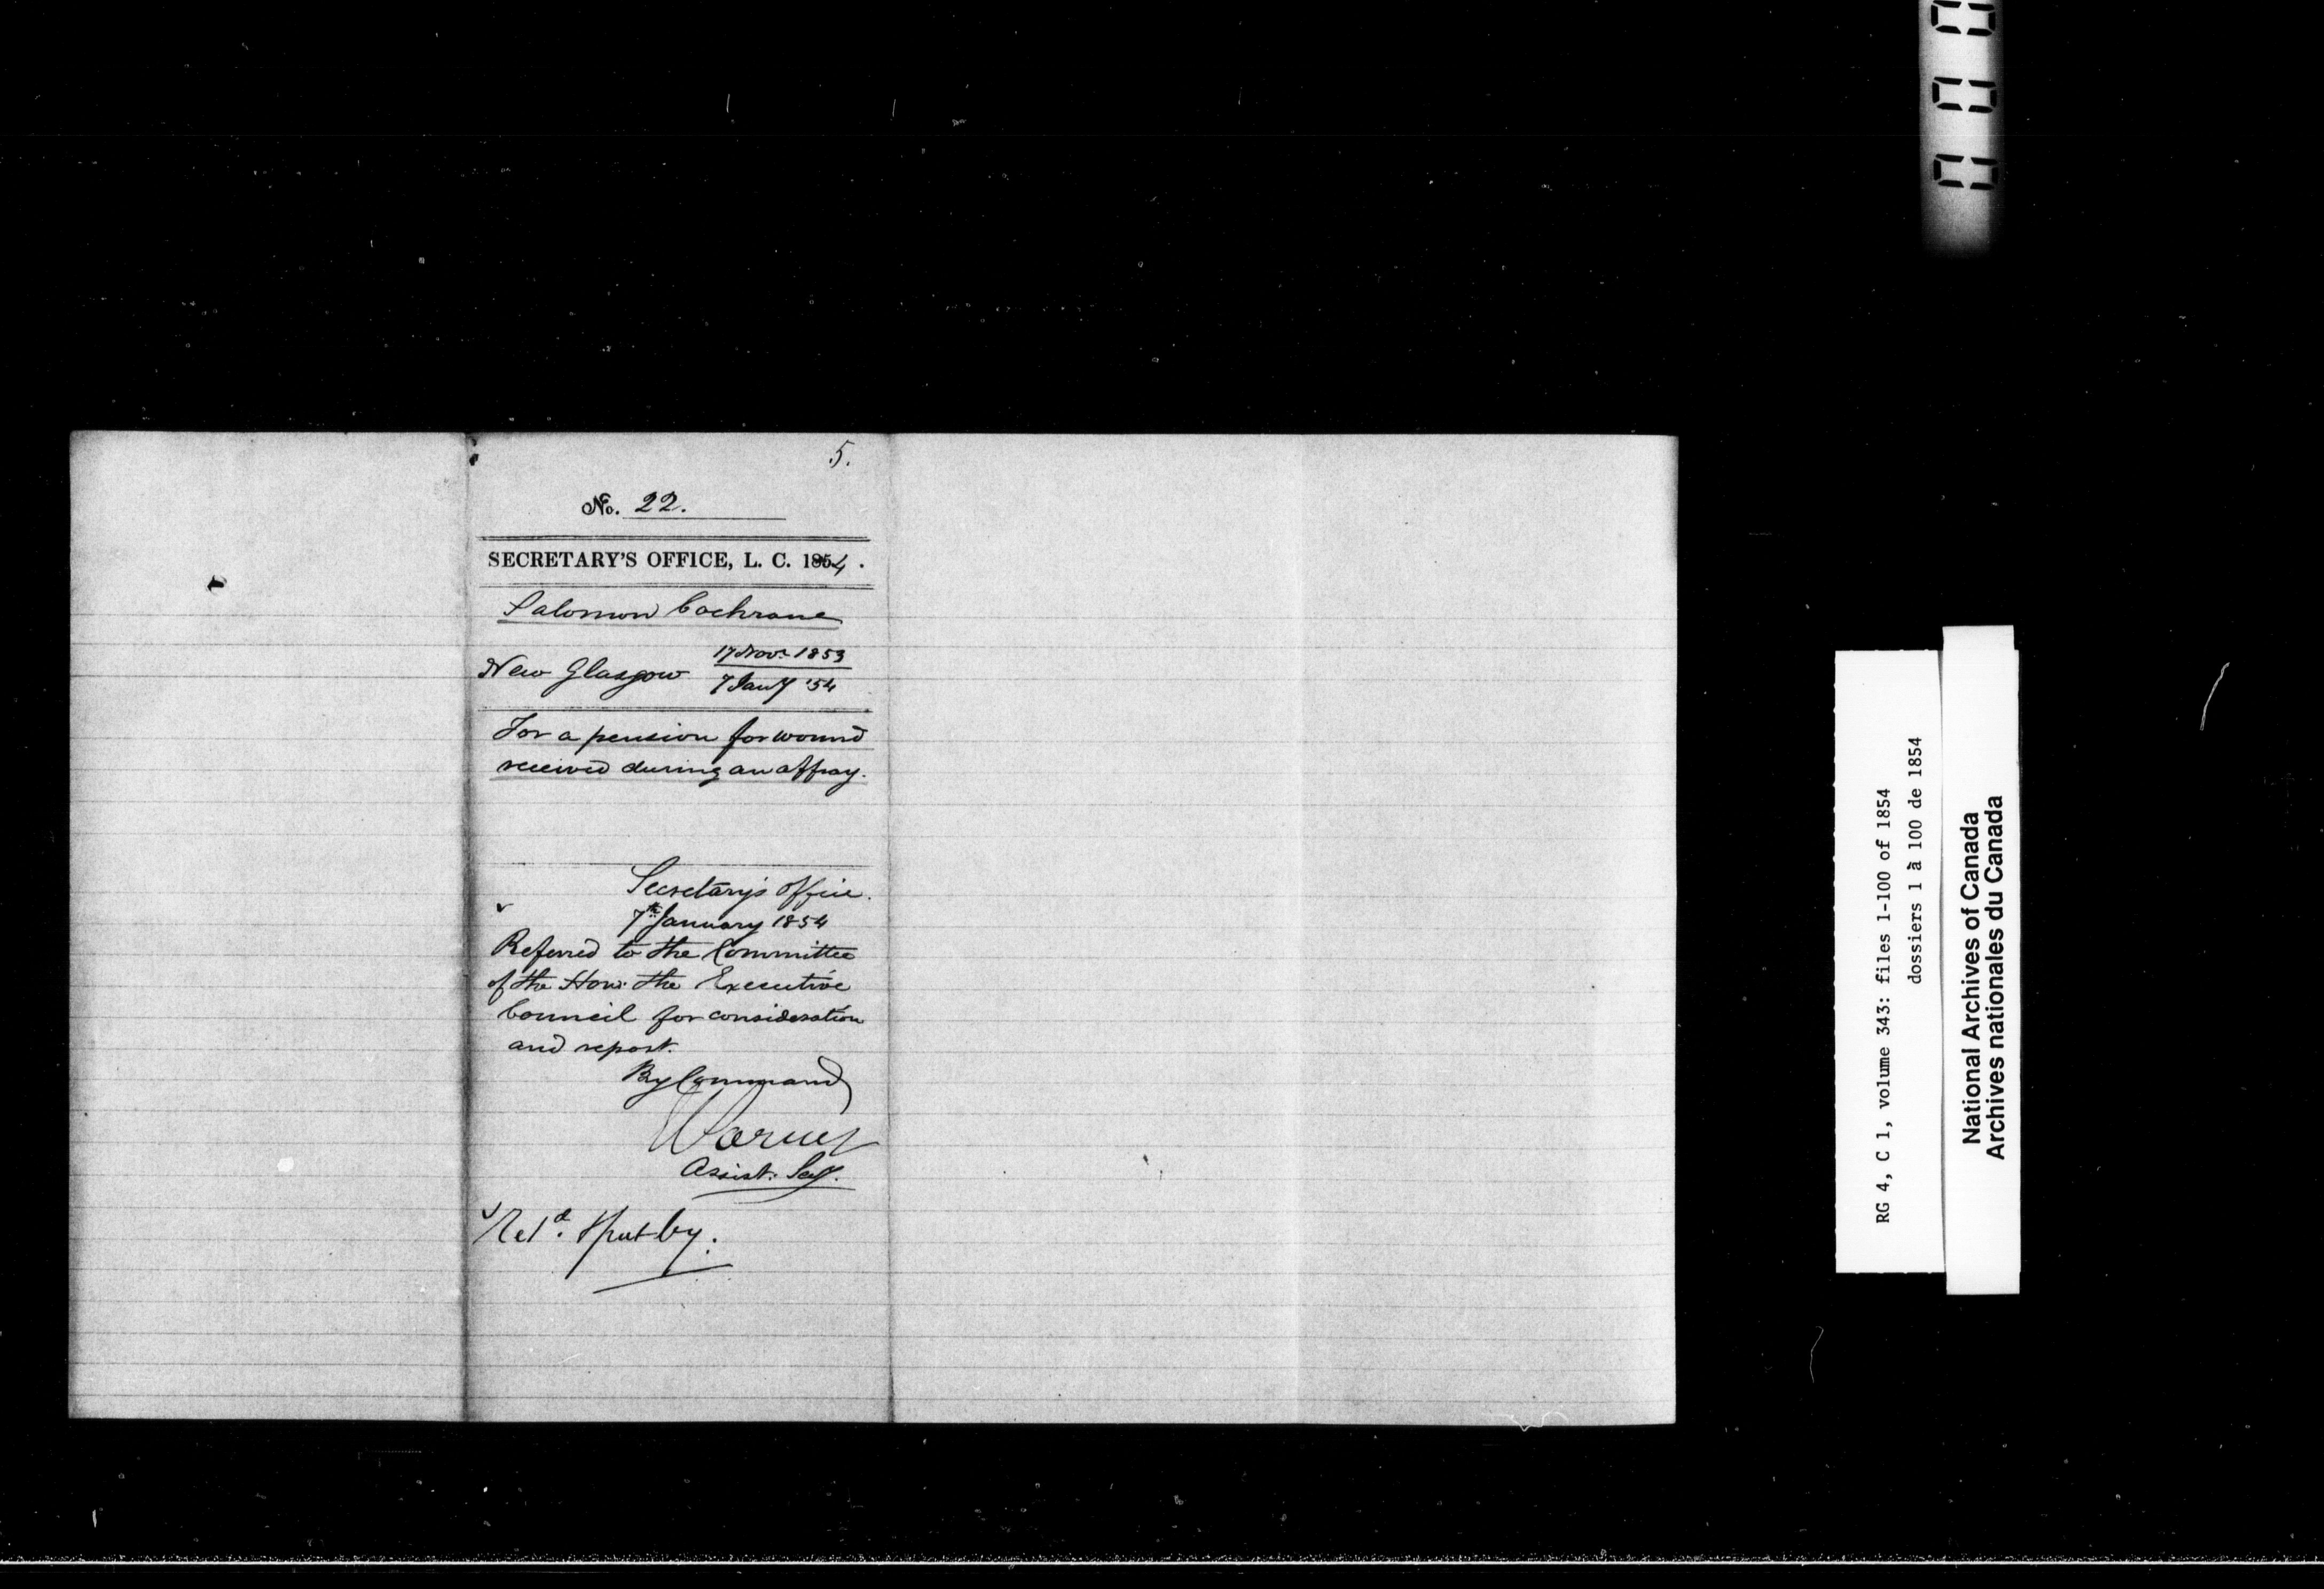 5.
No. 22.
SECRETARY'S OFFICE, L. C. 1854.
Salomon Cochrane
New Glasgow 17 Novr 1853
7 Jany '54
For a pension for wound
received during an affray.
Secretary's Office.
7th January 1854
Referred to the Committee
of the Hon: the Executive
Council for consideration
and report.
By Command
Assist: Secy.
Retd. & put by.
RG 4, C 1, volume 343: files 1-100 of 1854
dossiers 1 à 100 de 1854
National Archives of Canada
Archives nationales du Canada